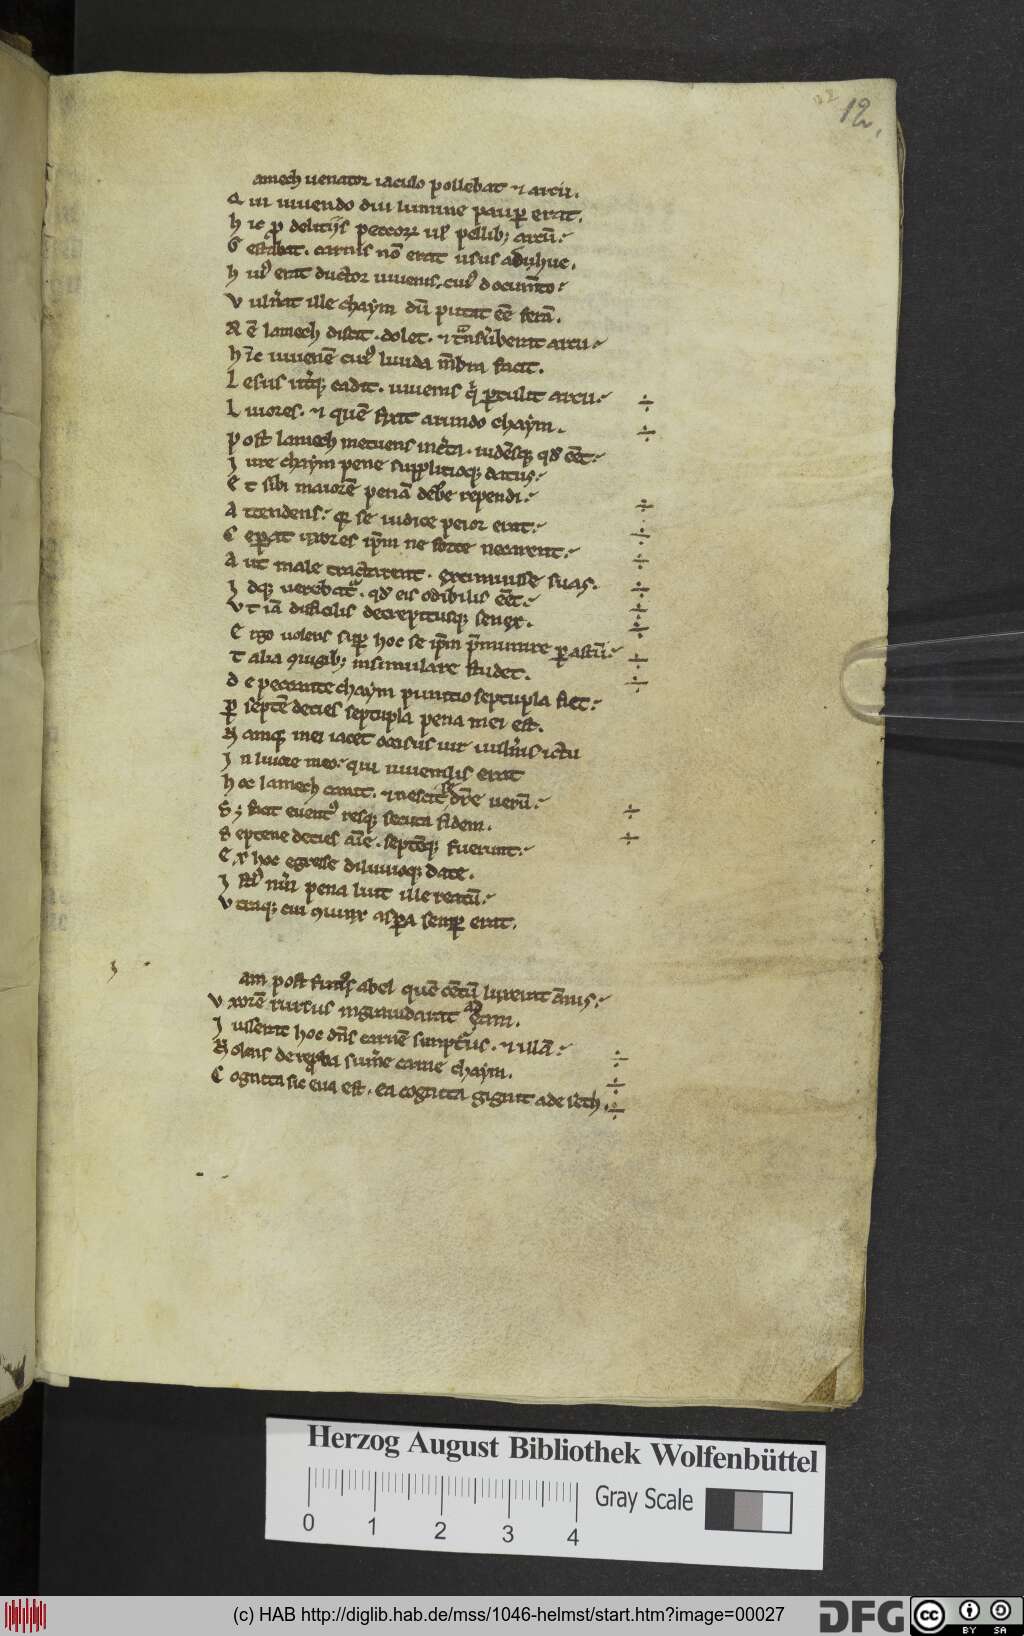 12.
amech uenator iaculo pollebat ⁊ arcu.
Qui uiuendo diu lumine paup erat.
hic p delitijs pellib; artū:
Gestabat. carnis nō erat usus adhuc.
huiꝰ erat ductor iuuenis. cuiꝰ documto:
Vulnat ille chaym dū putat eē ferā.
Rē lamech discit. dolet. ⁊
hic iuuenē cuiꝰ liuida mēbra facit.
Lesus utq; cadit. iuuenis q ptulit arcū:
Liuores. ⁊ quē fixit arundo chaym.
post lamech metuens qd eēt:
Iure chaym pene supplitioq; datus:
Et sibi maiorē penā debe rependi:
Attendens: se iudice peior erat:
Ceperat uxores ipm ne forte necarent:
Aut male tractarent. extimuisse suas.
Idq; uerebat. qd eis odibilis eēt:
Vt iā difficilis decrepitusq; senex.
Ergo uolens sup hoc se ipm pmunire p astū:
Talia giugib; insimulare studet.
de peccante chaym punitio septupla fiet:
p septē decies septupla pena mei est.
Namq; mei iacet occisus uir uulnis ictu
In liuore meo: qui iuuenilis erat
hoc lamech canit. ⁊ nescit dre uerū:
S; facit euentꝰ resq; secuta fidem.
Septene decies aīe. septēq; fuerunt:
Ex hoc egresse diluuioq; date.
Istiꝰ pena luit ille reatū:
Vtrinq; cui giunx aspa semp erat.
i
am post funus abel quē cētū lugerat annis:
Vxorē rursus ingrauidarat adam.
Iusserat hoc dns carnē sumpturus. ⁊ illā:
Nolens de repba sumē carne chaym.
Cognita sic eua est. ea cognita gignit ade seth.
Herzog August Bibliothek Wolfenbüttel
0 1 2 3 4
Gray Scale
(c) HAB http://diglib.hab.de/mss/1046-helmst/start.htm?image=00027
DFG
cc BY SA